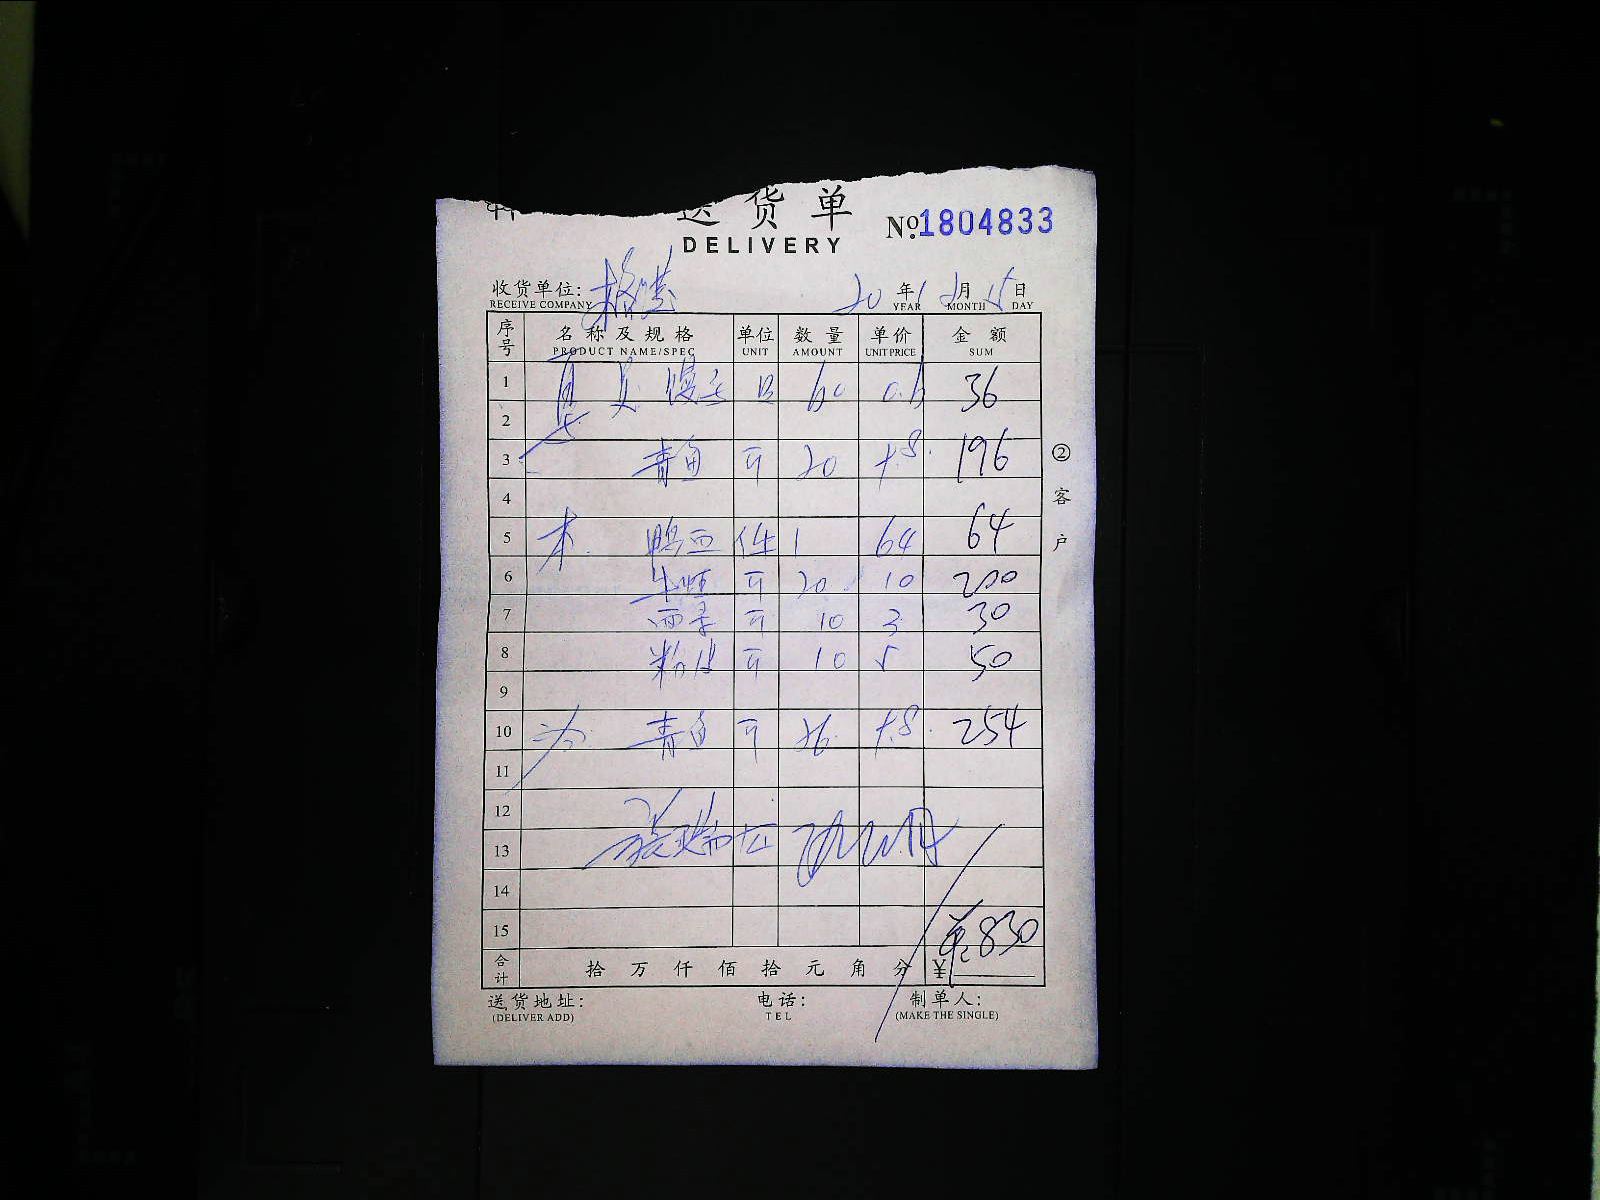 送货单
DELIVERY
№1804833
收货单位: 20年12月15日
RECEIVE COMPANY YEAR MONTH DAY
序号 名称及规格 单位 数量 单价 金额
PRODUCT NAME/SPEC UNIT AMOUNT UNIT PRICE SUM
1 只 60 0.6 36
2
3 青鱼 斤 20 9.8 196
4
5 鸭血 件 1 64 64
6 斤 20 10 200
7 斤 10 3 30
8 粉皮 斤 10 5 50
9
10 青鱼 斤 26 9.8 254
11
12
13
14
15 830
合计 拾万仟佰拾元角分 ¥
送货地址: 电话: 制单人:
(DELIVER ADD) TEL (MAKE THE SINGLE)
②客户